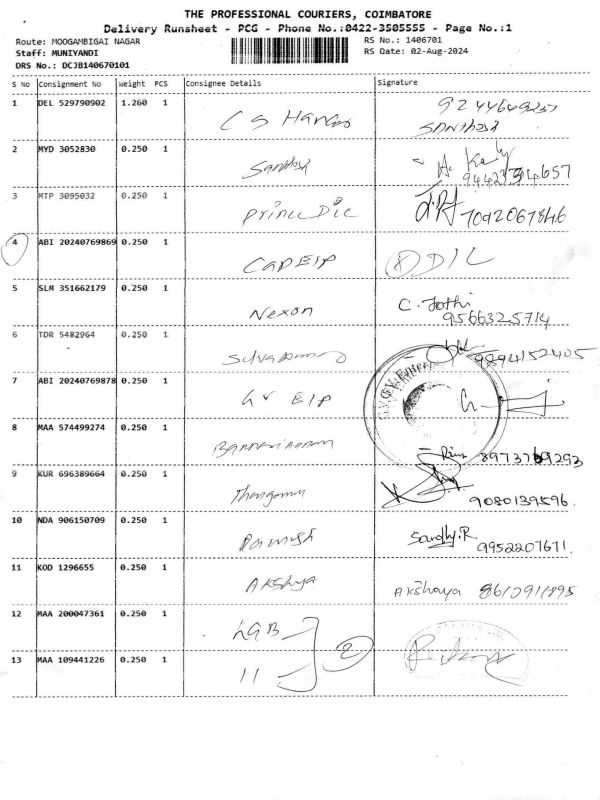 THE PROFESSIONAL COURIERS, COIMBATORE
Delivery Runsheet - PCG - Phone No.:0422-3505555 - Page No.:1
Route: MOOGAMBIGAI NAGAR RS No.: 1406701
Staff: MUNIYANDI RS Date: 02-Aug-2024
DRS No.: DCJB140670101
S No Consignment No Weight PCS Consignee Details Signature
1 DEL 529790902 1.260 1 C S
Santhosh
2 MYD 3052830 0.250 1 Santhosh
3 MTP 3095032 0.250 1 Prince Die 7092067846
4 ABI 20240769869 0.250 1 CADEIP 8 DIL
5 SLM 351662179 0.250 1 Nexon C. Jothi
9566325714
6 TDR 5482964 0.250 1 9894152405
7 ABI 20240769878 0.250 1 GV EIP
8 MAA 574499274 0.250 1
9 KUR 696389664 0.250 1
9080139596.
10 NDA 906150709 0.250 1 Ramesh Sandhy.R
9952207671.
11 KOD 1296655 0.250 1 Akshya Akshaya
12 MAA 200047361 0.250 1 LGB
2
13 MAA 109441226 0.250 1 11